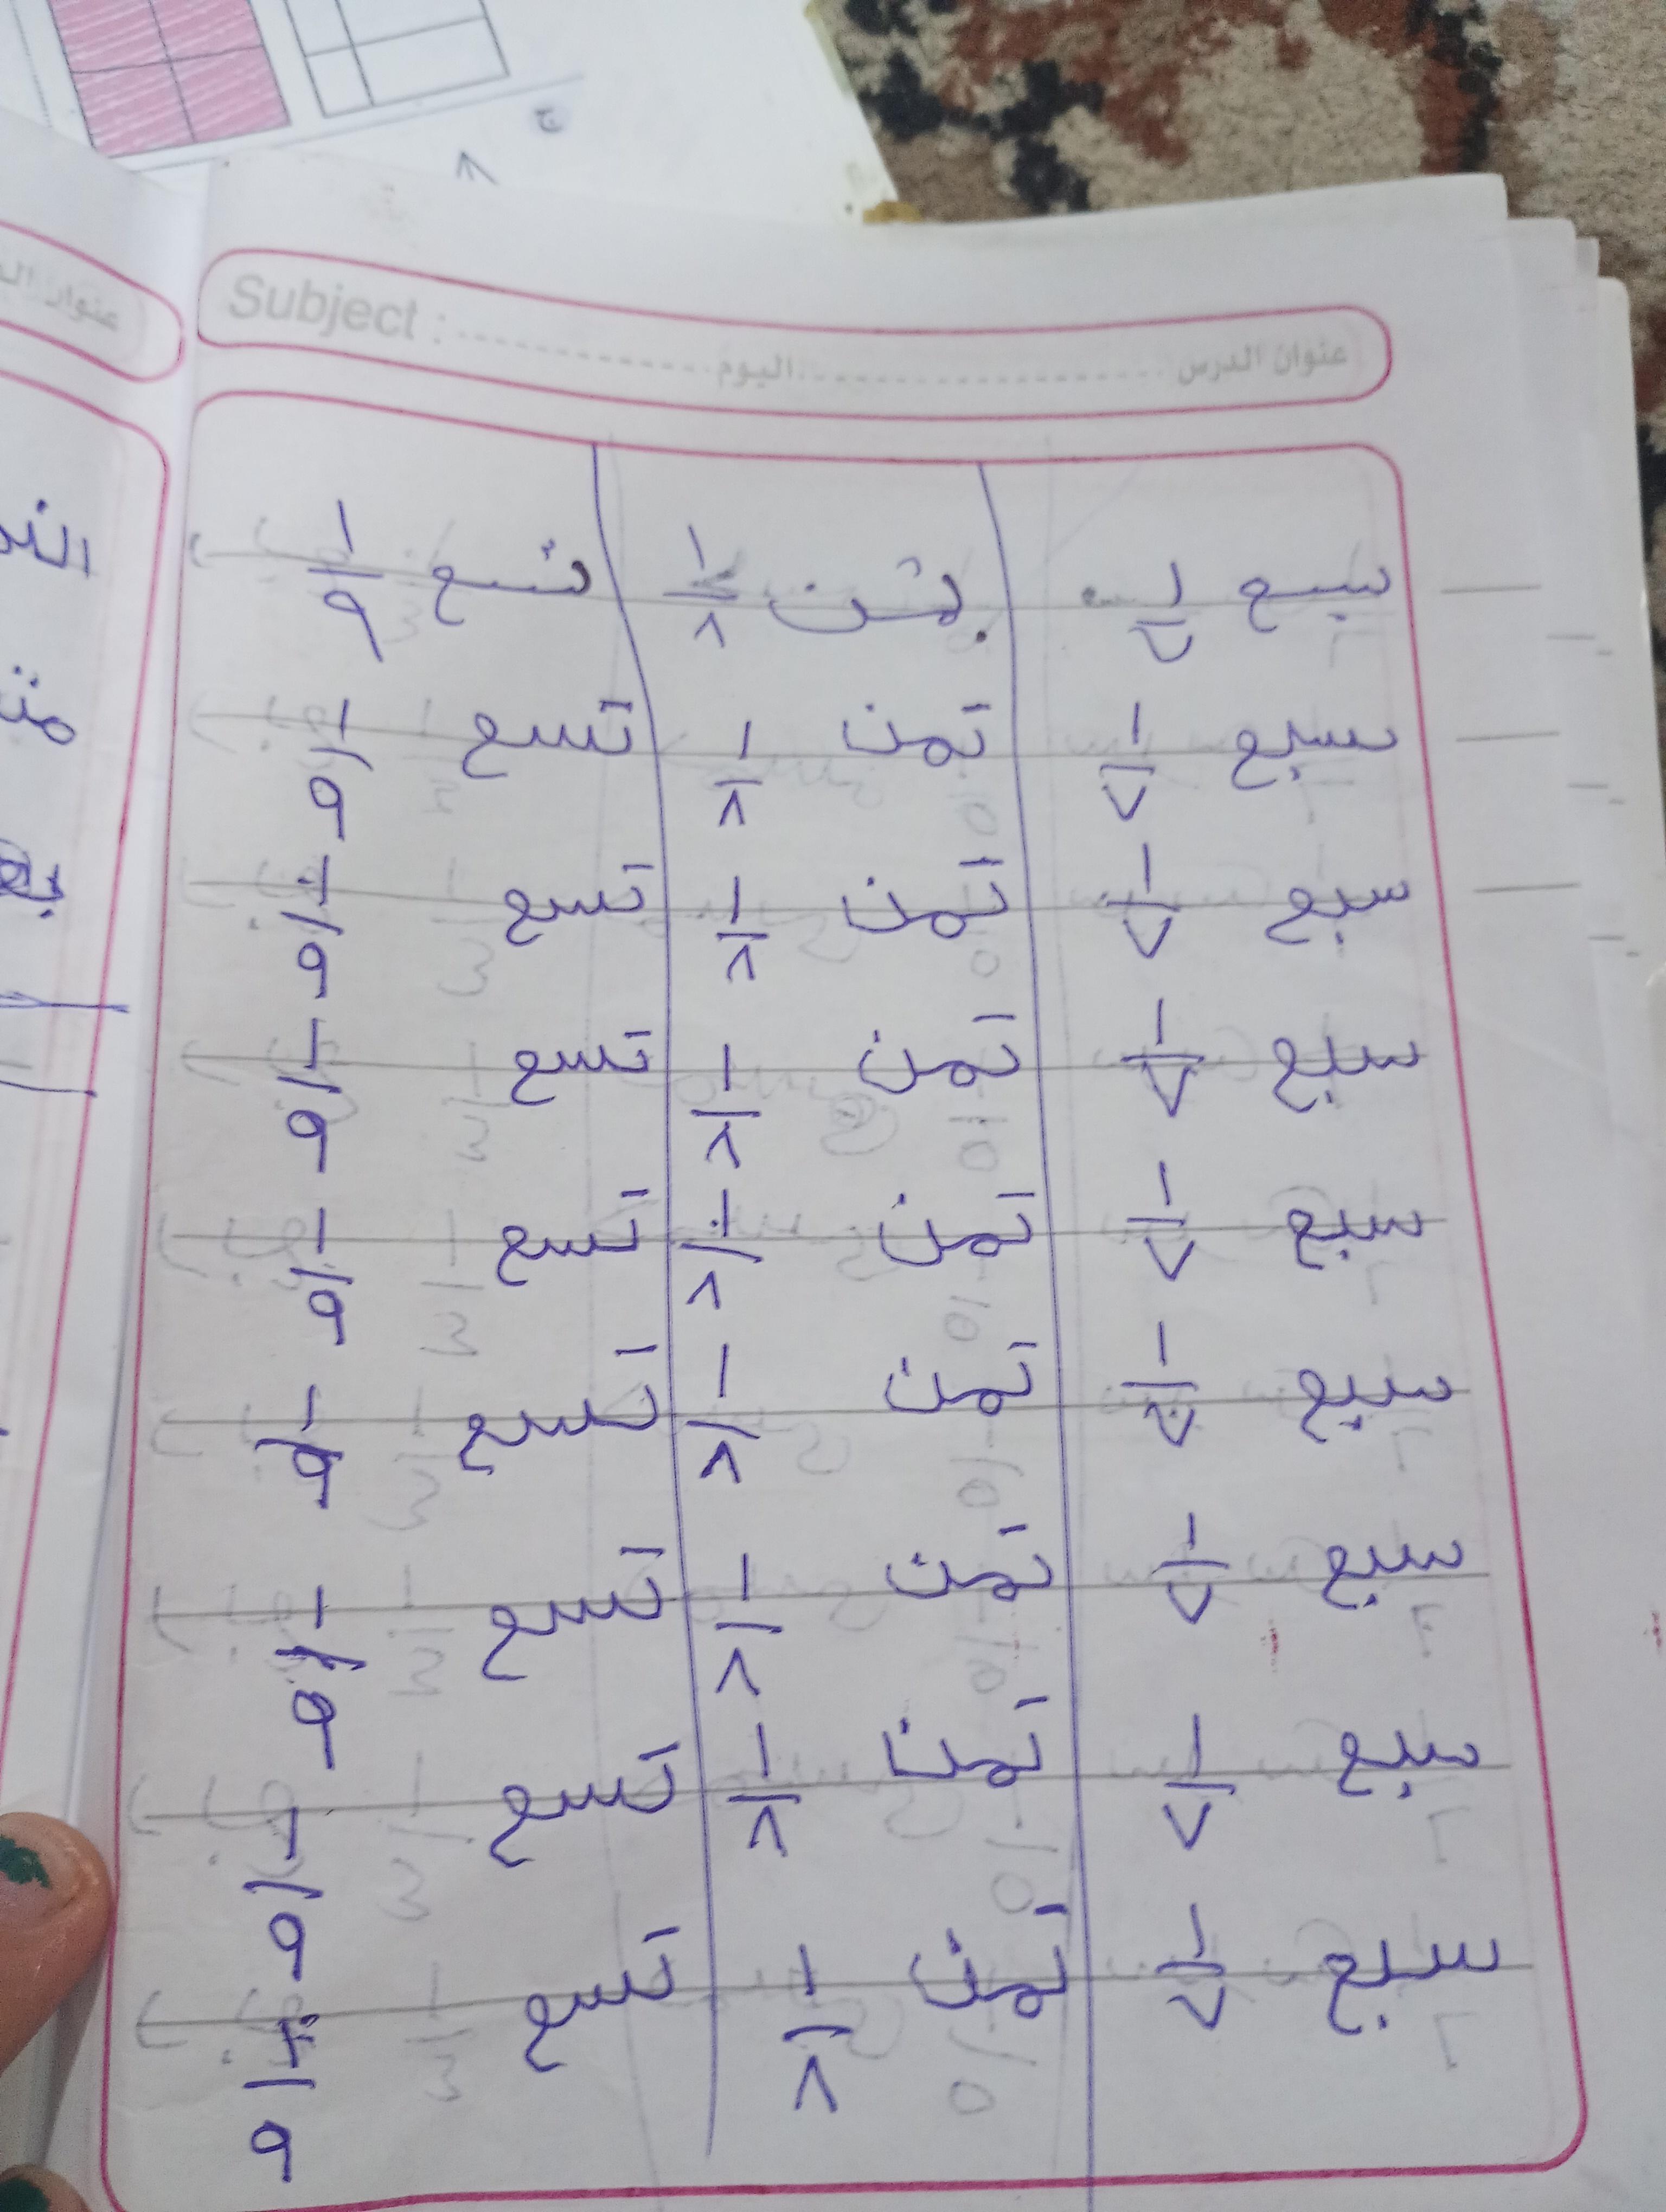 Subject : عنوان الدرس اليوم
سبع ١/٧ ثمن ١/٨ تسع ١/٩
سبع ١/٧ تمن ١/٨ تسع ١/٩
سبع ١/٧ تمن ١/٨ تسع ١/٩
سبع ١/٧ تمن ١/٨ تسع ١/٩
سبع ١/٧ تمن ١/٨ تسع ١/٩
سبع ١/٧ تمن ١/٨ تسع ١/٩
سبع ١/٧ تمن ١/٨ تسع ١/٩
سبع ١/٧ تمن ١/٨ تسع ١/٩
سبع ١/٧ تمن ١/٨ تسع ١/٩